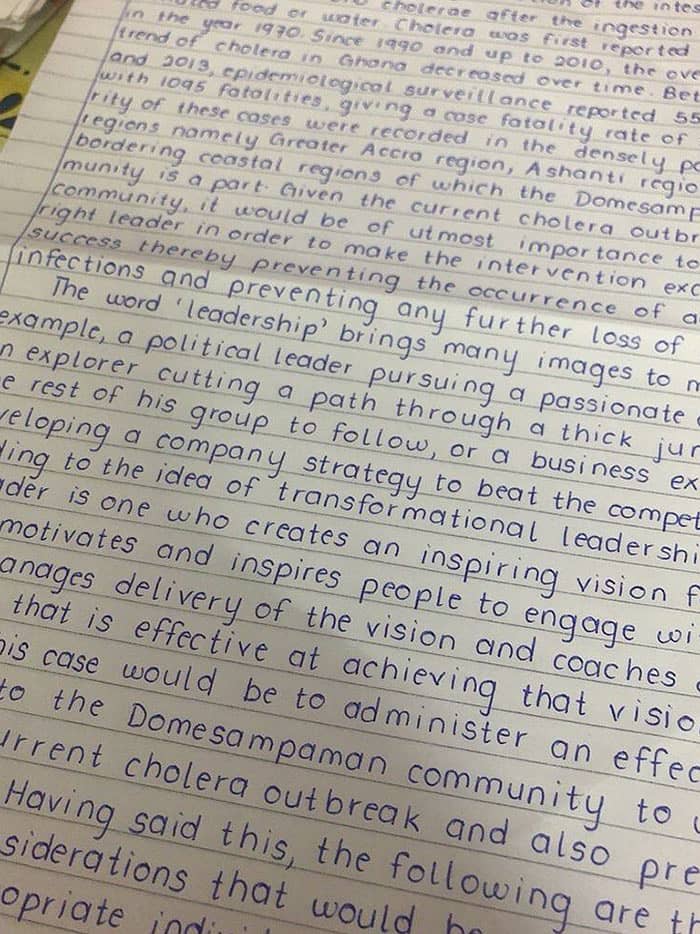 of the intes
food or water. Cholera was first reported
cholerae after the ingestion
in the year 1970. Since 1990 and up to 2010, the ove
trend of cholera in Ghana decreased over time. Bet
and 2013, epidemiological surveillance reported 55
with 1095 fatalities, giving a case fatality rate of
rity of these cases were recorded in the densely po
regions namely Greater Accra region, Ashanti regio
bordering coastal regions of which the Domesamp
munity is a part. Given the current cholera outbr
community, it would be of utmost importance to
right leader in order to make the intervention exc
success thereby preventing the occurrence of a
infections and preventing any further loss of
The word 'leadership' brings many images to m
example, a political leader pursuing a passionate
n explorer cutting a path through a thick jun
e rest of his group to follow, or a business ex
veloping a company strategy to beat the compet
ding to the idea of transformational leadershi
der is one who creates an inspiring vision f
motivates and inspires people to engage wi
anages delivery of the vision and coaches
that is effective at achieving that visio
his case would be to administer an effec
to the Domesampaman community to
urrent cholera outbreak and also pre
Having said this, the following are th
siderations that would be
opriate